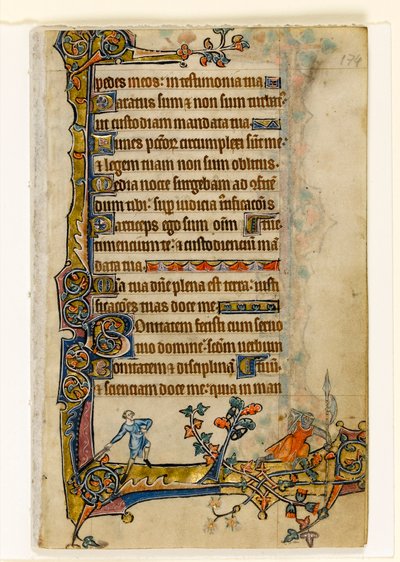 174
pedes meos: in testimonia tua
Paratus sum & non sum turbat⁹
ut custodiam mandata tua
Funes pctõr circumplexi sūt me:
& legem tuam non sum oblitus.
Media nocte surgebam ad ↄfitē
dum tibi: sup iudicia iustificacõis
Particeps ego sum oīm timē
cium te: & custodiencium mā
data tua
Mīa tua dñe plena est terra: iusti
ficacões tuas doce me
Bonitatem fecisti cum servo
tuo domine: scdm verbum
Bonitatem & disciplinā
& scienciam doce me: quia in man